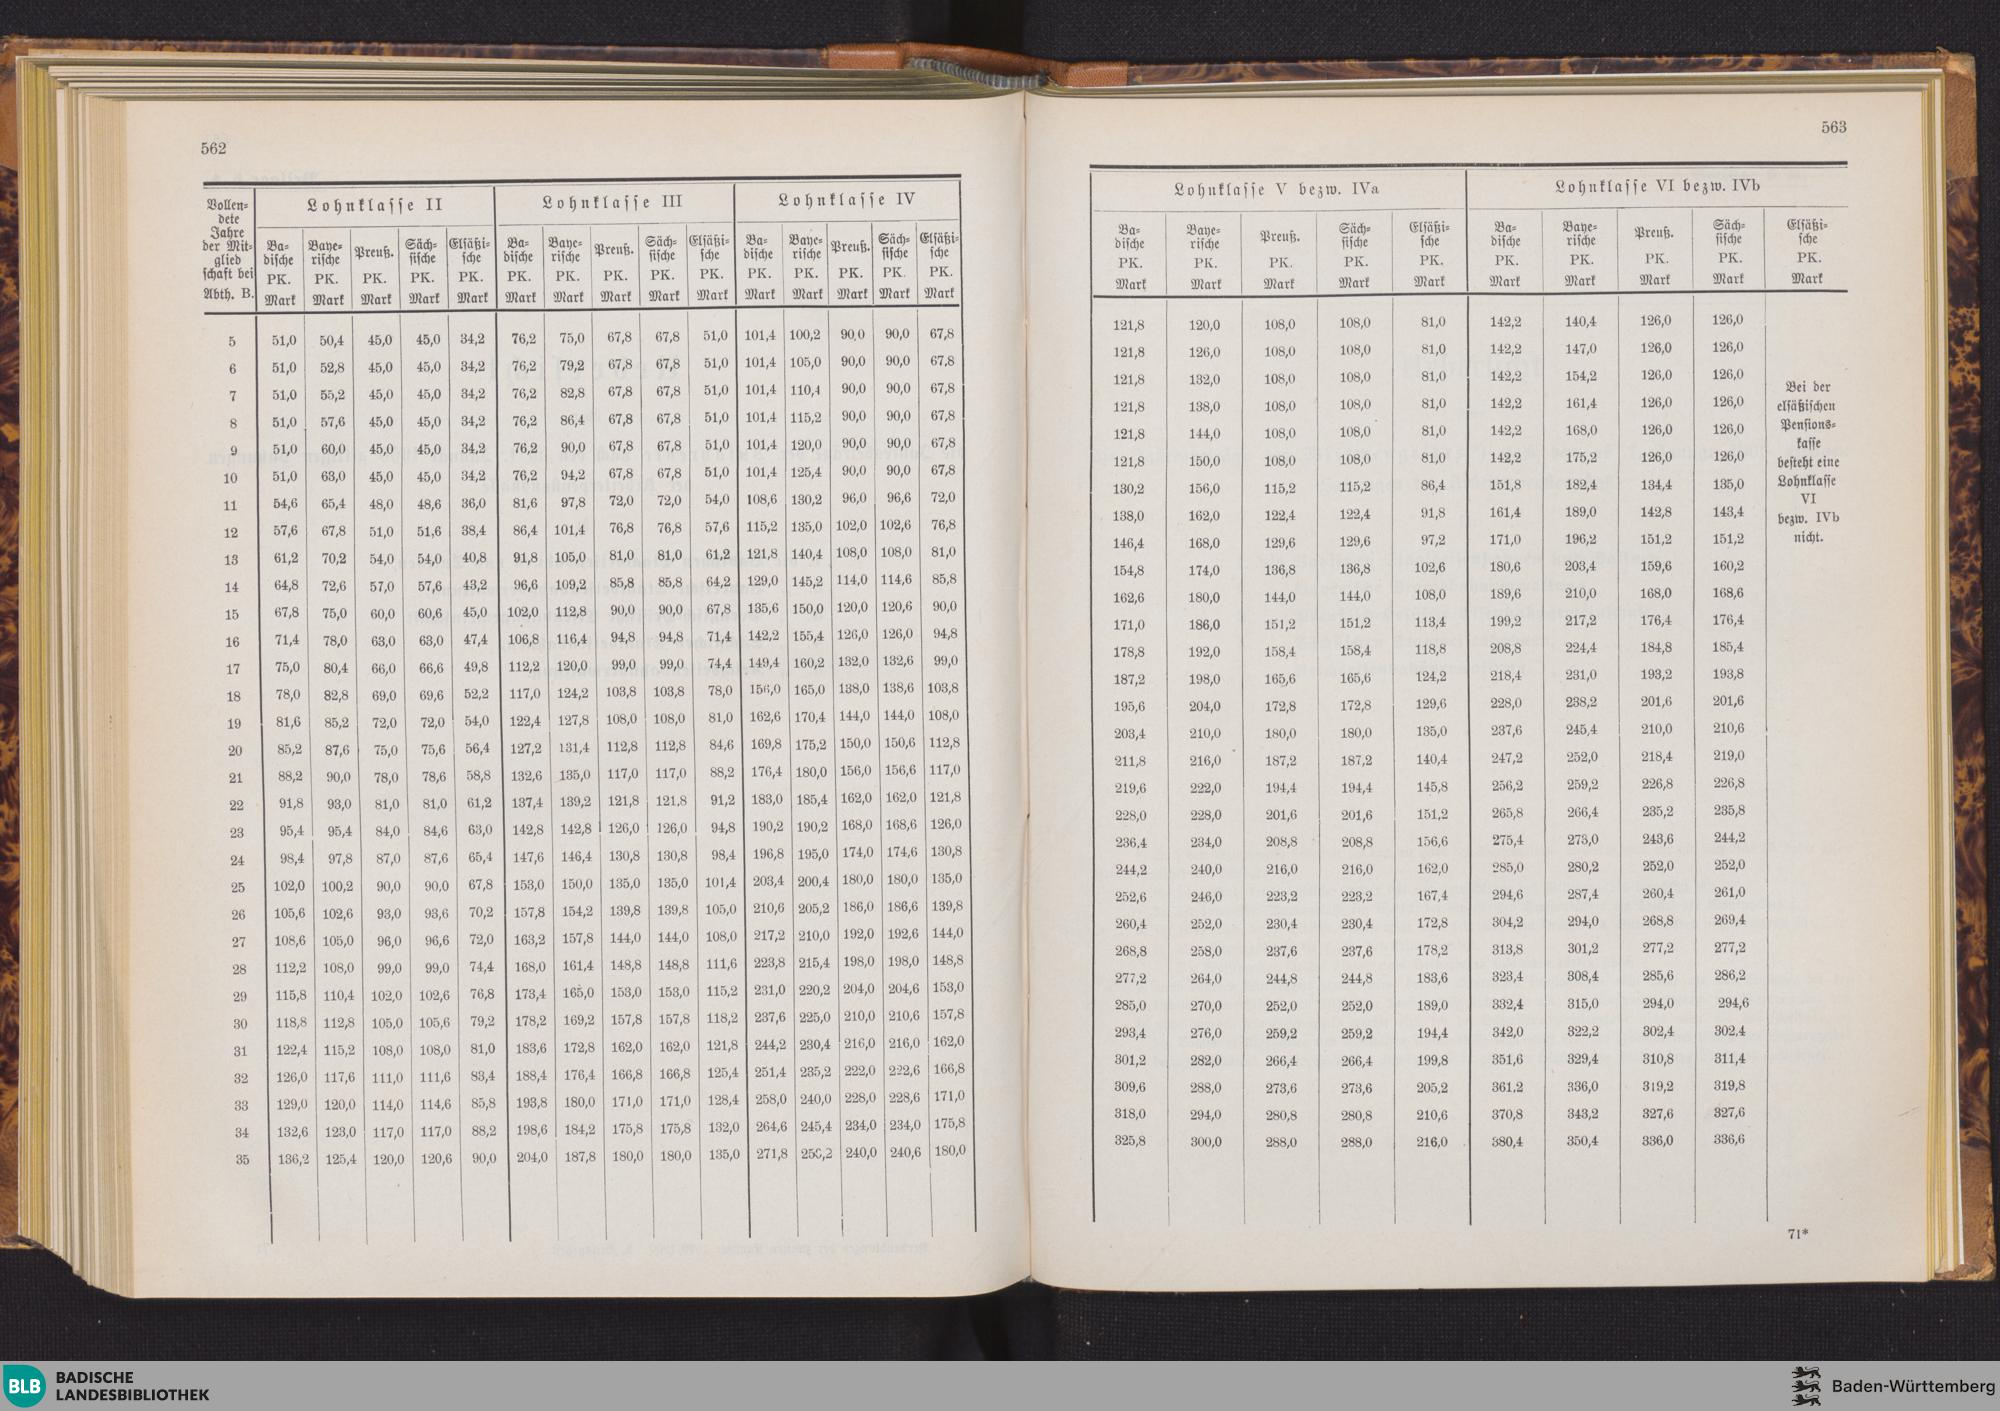 562
Lohnklasse II Lohnklasse III Lohnklasse IV
Vollen-
dete
Jahre
der Mit-
glied
schaft bei
Abth. B.
Ba-
dische
PK.
Mark
Baye-
rische
PK.
Mark
Preuß.
PK.
Mark
Säch-
sische
PK.
Mark
Elsäßi-
sche
PK.
Mark
Ba-
dische
PK.
Mark
Baye-
rische
PK.
Mark
Preuß.
PK.
Mark
Säch-
sische
PK.
Mark
Elsäßi-
sche
PK.
Mark
Ba-
dische
PK.
Mark
Baye-
rische
PK.
Mark
Preuß.
PK.
Mark
Säch-
sische
PK.
Mark
Elsäßi-
sche
PK.
Mark
5 51,0 50,4 45,0 45,0 34,2 76,2 75,0 67,8 67,8 51,0 101,4 100,2 90,0 90,0 67,8
6 51,0 52,8 45,0 45,0 34,2 76,2 79,2 67,8 67,8 51,0 101,4 105,0 90,0 90,0 67,8
7 51,0 55,2 45,0 45,0 34,2 76,2 82,8 67,8 67,8 51,0 101,4 110,4 90,0 90,0 67,8
8 51,0 57,6 45,0 45,0 34,2 76,2 86,4 67,8 67,8 51,0 101,4 115,2 90,0 90,0 67,8
9 51,0 60,0 45,0 45,0 34,2 76,2 90,0 67,8 67,8 51,0 101,4 120,0 90,0 90,0 67,8
10 51,0 63,0 45,0 45,0 34,2 76,2 94,2 67,8 67,8 51,0 101,4 125,4 90,0 90,0 67,8
11 54,6 65,4 48,0 48,6 36,0 81,6 97,8 72,0 72,0 54,0 108,6 130,2 96,0 96,6 72,0
12 57,6 67,8 51,0 51,6 38,4 86,4 101,4 76,8 76,8 57,6 115,2 135,0 102,0 102,6 76,8
13 61,2 70,2 54,0 54,0 40,8 91,8 105,0 81,0 81,0 61,2 121,8 140,4 108,0 108,0 81,0
14 64,8 72,6 57,0 57,6 43,2 96,6 109,2 85,8 85,8 64,2 129,0 145,2 114,0 114,6 85,8
15 67,8 75,0 60,0 60,6 45,0 102,0 112,8 90,0 90,0 67,8 135,6 150,0 120,0 120,6 90,0
16 71,4 78,0 63,0 63,0 47,4 106,8 116,4 94,8 94,8 71,4 142,2 155,4 126,0 126,0 94,8
17 75,0 80,4 66,0 66,6 49,8 112,2 120,0 99,0 99,0 74,4 149,4 160,2 132,0 132,6 99,0
18 78,0 82,8 69,0 69,6 52,2 117,0 124,2 103,8 103,8 78,0 156,0 165,0 138,0 138,6 103,8
19 81,6 85,2 72,0 72,0 54,0 122,4 127,8 108,0 108,0 81,0 162,6 170,4 144,0 144,0 108,0
20 85,2 87,6 75,0 75,6 56,4 127,2 131,4 112,8 112,8 84,6 169,8 175,2 150,0 150,6 112,8
21 88,2 90,0 78,0 78,6 58,8 132,6 135,0 117,0 117,0 88,2 176,4 180,0 156,0 156,6 117,0
22 91,8 93,0 81,0 81,0 61,2 137,4 139,2 121,8 121,8 91,2 183,0 185,4 162,0 162,0 121,8
23 95,4 95,4 84,0 84,6 63,0 142,8 142,8 126,0 126,0 94,8 190,2 190,2 168,0 168,6 126,0
24 98,4 97,8 87,0 87,6 65,4 147,6 146,4 130,8 130,8 98,4 196,8 195,0 174,0 174,6 130,8
25 102,0 100,2 90,0 90,0 67,8 153,0 150,0 135,0 135,0 101,4 203,4 200,4 180,0 180,0 135,0
26 105,6 102,6 93,0 93,6 70,2 157,8 154,2 139,8 139,8 105,0 210,6 205,2 186,0 186,6 139,8
27 108,6 105,0 96,0 96,6 72,0 163,2 157,8 144,0 144,0 108,0 217,2 210,0 192,0 192,6 144,0
28 112,2 108,0 99,0 99,0 74,4 168,0 161,4 148,8 148,8 111,6 223,8 215,4 198,0 198,0 148,8
29 115,8 110,4 102,0 102,6 76,8 173,4 165,0 153,0 153,0 115,2 231,0 220,2 204,0 204,6 153,0
30 118,8 112,8 105,0 105,6 79,2 178,2 169,2 157,8 157,8 118,2 237,6 225,0 210,0 210,6 157,8
31 122,4 115,2 108,0 108,0 81,0 183,6 172,8 162,0 162,0 121,8 244,2 230,4 216,0 216,0 162,0
32 126,0 117,6 111,0 111,6 83,4 188,4 176,4 166,8 166,8 125,4 251,4 235,2 222,0 222,6 166,8
33 129,0 120,0 114,0 114,6 85,8 193,8 180,0 171,0 171,0 128,4 258,0 240,0 228,0 228,6 171,0
34 132,6 123,0 117,0 117,0 88,2 198,6 184,2 175,8 175,8 132,0 264,6 245,4 234,0 234,0 175,8
35 136,2 125,4 120,0 120,6 90,0 204,0 187,8 180,0 180,0 135,0 271,8 250,2 240,0 240,6 180,0
563
Lohnklasse V bezw. IVa Lohnklasse VI bezw. IVb
Ba-
dische
PK.
Mark
Baye-
rische
PK.
Mark
Preuß.
PK.
Mark
Säch-
sische
PK.
Mark
Elsäßi-
sche
PK.
Mark
Ba-
dische
PK.
Mark
Baye-
rische
PK.
Mark
Preuß.
PK.
Mark
Säch-
sische
PK.
Mark
Elsäßi-
sche
PK.
Mark
121,8 120,0 108,0 108,0 81,0 142,2 140,4 126,0 126,0
121,8 126,0 108,0 108,0 81,0 142,2 147,0 126,0 126,0
121,8 132,0 108,0 108,0 81,0 142,2 154,2 126,0 126,0
121,8 138,0 108,0 108,0 81,0 142,2 161,4 126,0 126,0
121,8 144,0 108,0 108,0 81,0 142,2 168,0 126,0 126,0
121,8 150,0 108,0 108,0 81,0 142,2 175,2 126,0 126,0
130,2 156,0 115,2 115,2 86,4 151,8 182,4 134,4 135,0
138,0 162,0 122,4 122,4 91,8 161,4 189,0 142,8 143,4
146,4 168,0 129,6 129,6 97,2 171,0 196,2 151,2 151,2
154,8 174,0 136,8 136,8 102,6 180,6 203,4 159,6 160,2
162,6 180,0 144,0 144,0 108,0 189,6 210,0 168,0 168,6
171,0 186,0 151,2 151,2 113,4 199,2 217,2 176,4 176,4
178,8 192,0 158,4 158,4 118,8 208,8 224,4 184,8 185,4
187,2 198,0 165,6 165,6 124,2 218,4 231,0 193,2 193,8
195,6 204,0 172,8 172,8 129,6 228,0 238,2 201,6 201,6
203,4 210,0 180,0 180,0 135,0 237,6 245,4 210,0 210,6
211,8 216,0 187,2 187,2 140,4 247,2 252,0 218,4 219,0
219,6 222,0 194,4 194,4 145,8 256,2 259,2 226,8 226,8
228,0 228,0 201,6 201,6 151,2 265,8 266,4 235,2 235,8
236,4 234,0 208,8 208,8 156,6 275,4 273,0 243,6 244,2
244,2 240,0 216,0 216,0 162,0 285,0 280,2 252,0 252,0
252,6 246,0 223,2 223,2 167,4 294,6 287,4 260,4 261,0
260,4 252,0 230,4 230,4 172,8 304,2 294,0 268,8 269,4
268,8 258,0 237,6 237,6 178,2 313,8 301,2 277,2 277,2
277,2 264,0 244,8 244,8 183,6 323,4 308,4 285,6 286,2
285,0 270,0 252,0 252,0 189,0 332,4 315,0 294,0 294,6
293,4 276,0 259,2 259,2 194,4 342,0 322,2 302,4 302,4
301,2 282,0 266,4 266,4 199,8 351,6 329,4 310,8 311,4
309,6 288,0 273,6 273,6 205,2 361,2 336,0 319,2 319,8
318,0 294,0 280,8 280,8 210,6 370,8 343,2 327,6 327,6
325,8 300,0 288,0 288,0 216,0 380,4 350,4 336,0 336,6
Bei der
elsäßischen
Pensions-
kasse
besteht eine
Lohnklasse
VI
bezw. IVb
nicht.
71*
BLB
BADISCHE
LANDESBIBLIOTHEK
Baden-Württemberg